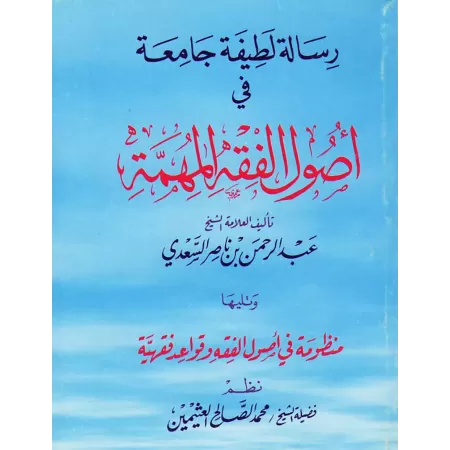 رسالة لطيفة جامعة
في
أصول الفقه المهمة
تأليف العلامة الشيخ
عبد الرحمن بن ناصر السعدي
وتليها
منظومة في أصول الفقه وقواعد فقهية
نظم
فضيلة الشيخ / محمد الصالح العثيمين